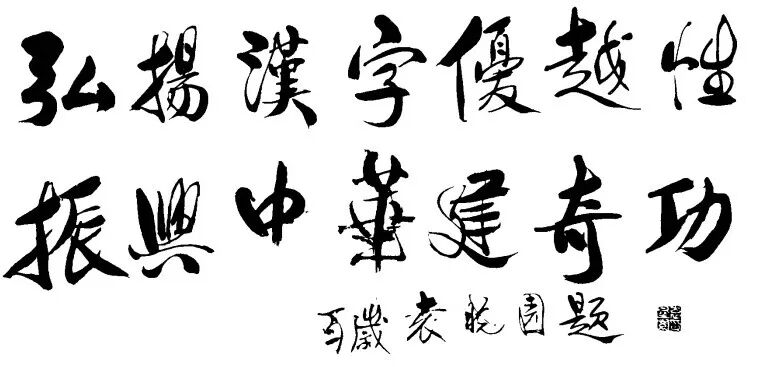 弘揚漢字優越性
振興中華建奇功
百歲袁晓園題